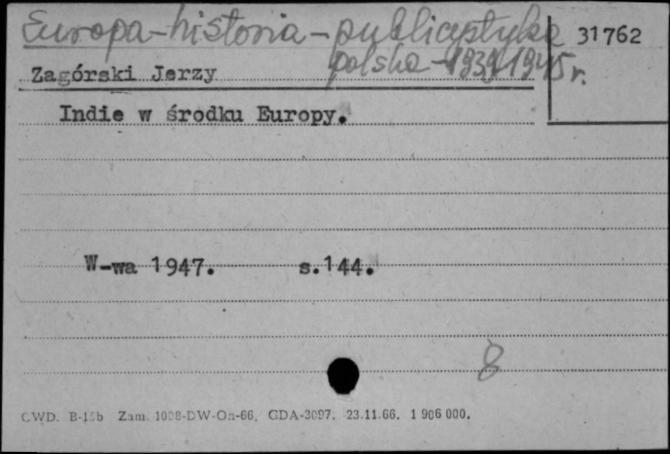 Europa - historia - publicystyka
polska - 1939-1945 r.
31762
Zagórski Jerzy
Indie w środku Europy.
W-wa 1947. s.144.
8
CWD. B-15b Zam. 1008-DW-On-66, GDA-3097. 23.11.66. 1 906 000.